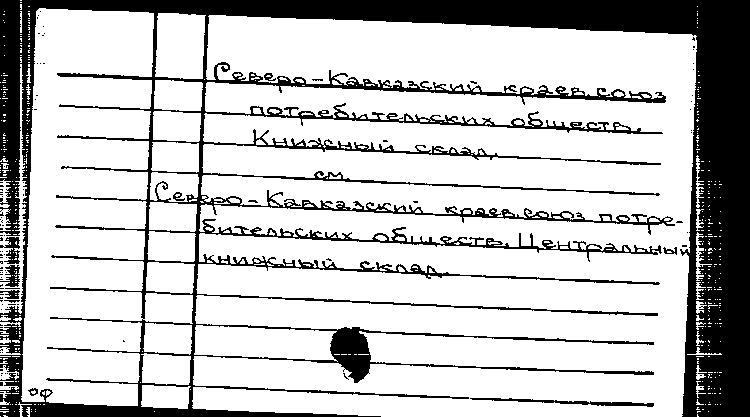 Северо-Кавказский краев. союз
потребительских обществ.
Книжный склад.
см.
Северо-Кавказский краев. союз потре-
бительских обществ. Центральный
книжный склад.
оф